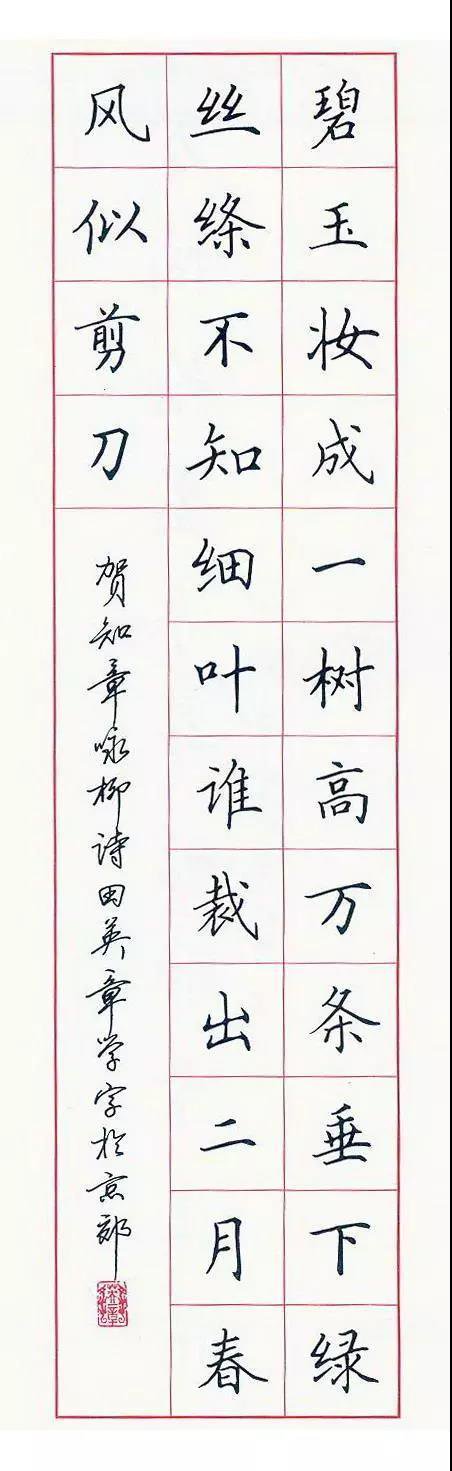 碧玉妆成一树高万条垂下绿
丝绦不知细叶谁裁出二月春
风似剪刀
贺知章咏柳诗田英章学字于京郊